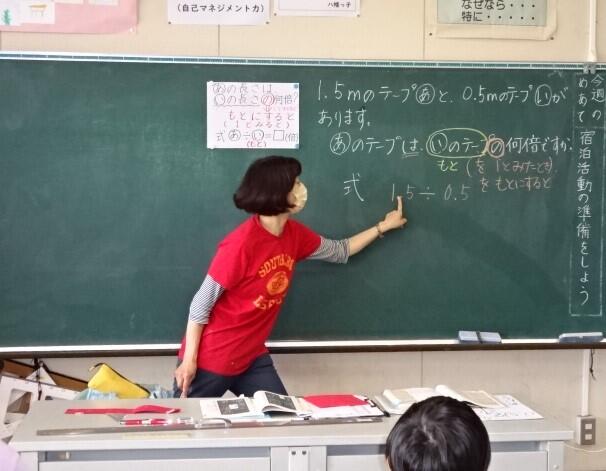 (自己マネジメント力)
八幡っ子
なぜなら・・・・
特に・・・・・
あの長さは、
いの長さの何倍?
もとにすると
(1とみると)
式 あ÷い=□(倍)
(もと)
1.5mのテープあと、0.5mのテープいが
あります。
あのテープは、いのテープの何倍ですか。
もと (を1とみたとき)
をもとにすると
式 1.5÷0.5
今週のめあて 宿泊活動の準備をしよう